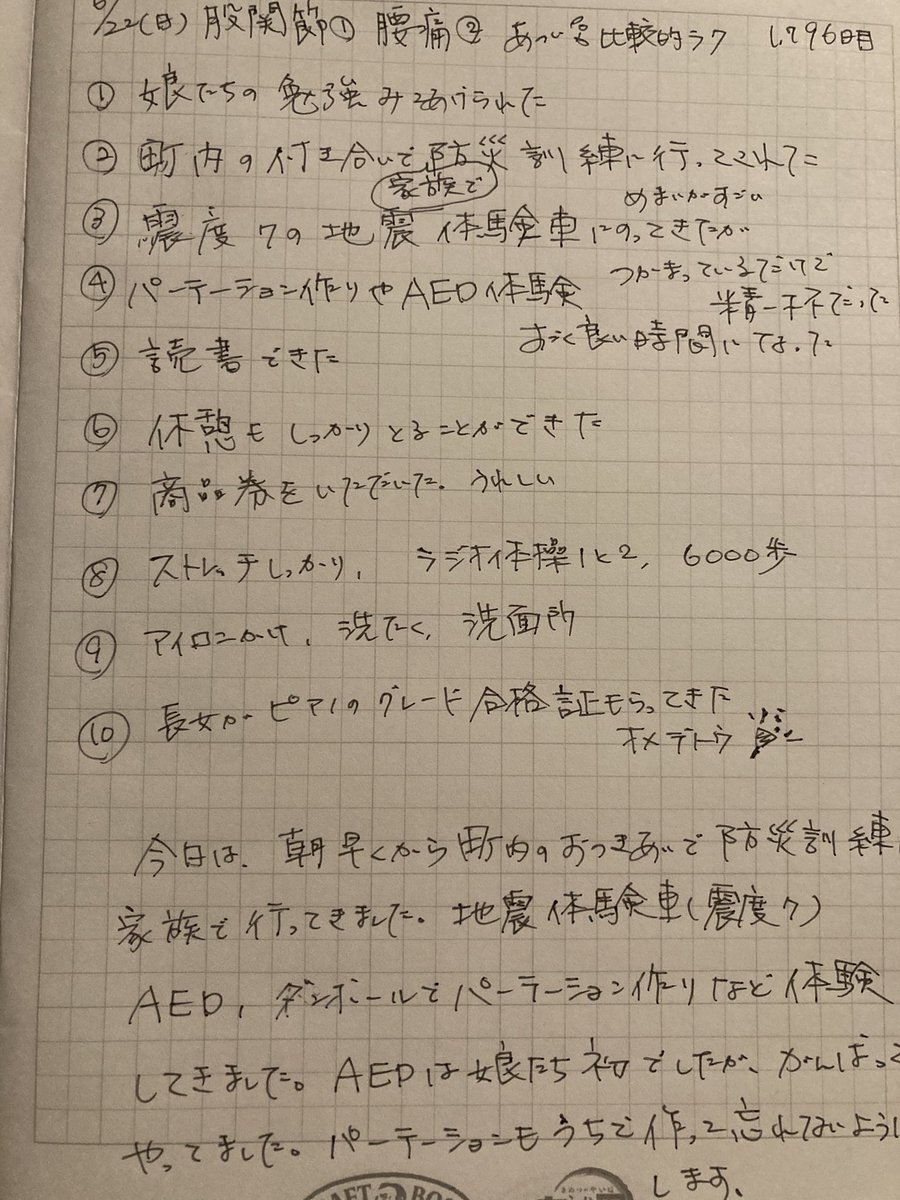 6/22(日) 股関節① 腰痛② あつい 比較的ラク 1,796日目
① 娘たちの勉強みてあげられた
② 町内の付き合いで防災訓練に行ってこれた
家族で
めまいがすごい
③ 震度7の地震体験車にのってきたが
つかまっているだけで
精一杯だった
④ パーテーション作りやAED体験
すごく良い時間になった
⑤ 読書できた
⑥ 休憩もしっかりとることができた
⑦ 商品券をいただいた。うれしい
⑧ ストレッチしっかり、ラジオ体操1と2、6000歩
⑨ アイロンかけ、洗たく、洗面所
⑩ 長女がピアノのグレード合格証もらってきた
オメデトウ
今日は、朝早くから町内のおつきあいで防災訓練
家族で行ってきました。地震体験車(震度7)
AED、ダンボールでパーテーション作りなど体験
してきました。AEDは娘たち初でしたが、がんばって
やってました。パーテーションもうちで作って忘れないように
します。